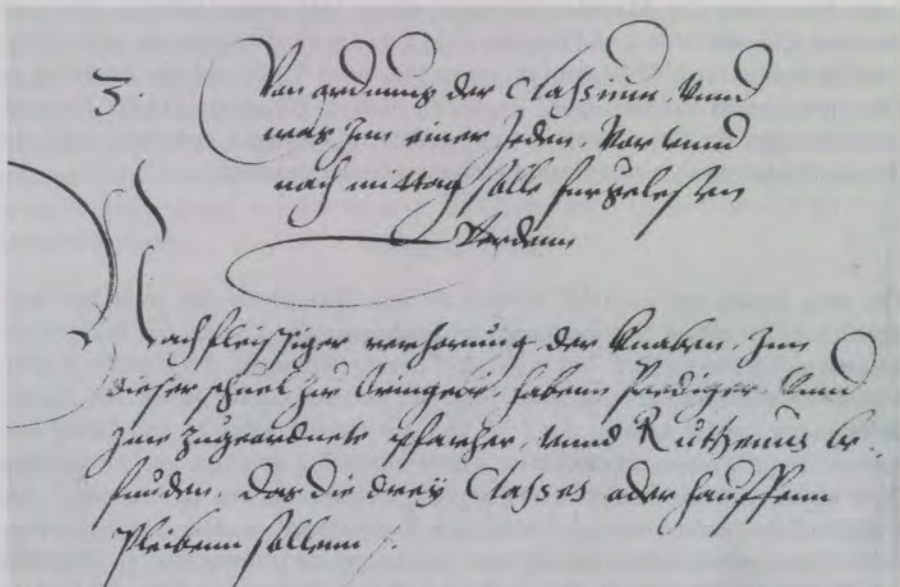 3. Von ordnung der Classium. Vnnd
was Inn einer Jeden. Vor vnnd
nach mittag solle furgelesenn
Werdenn
Nach fleissiger verhorung der Knaben. Inn
dieser schuel zu haben Prediger. Vnnd
Ime Zugeordnete pfarher, vnnd be-
funden. Das die dreÿ Classes oder hauffenn
Pleibenn sollenn